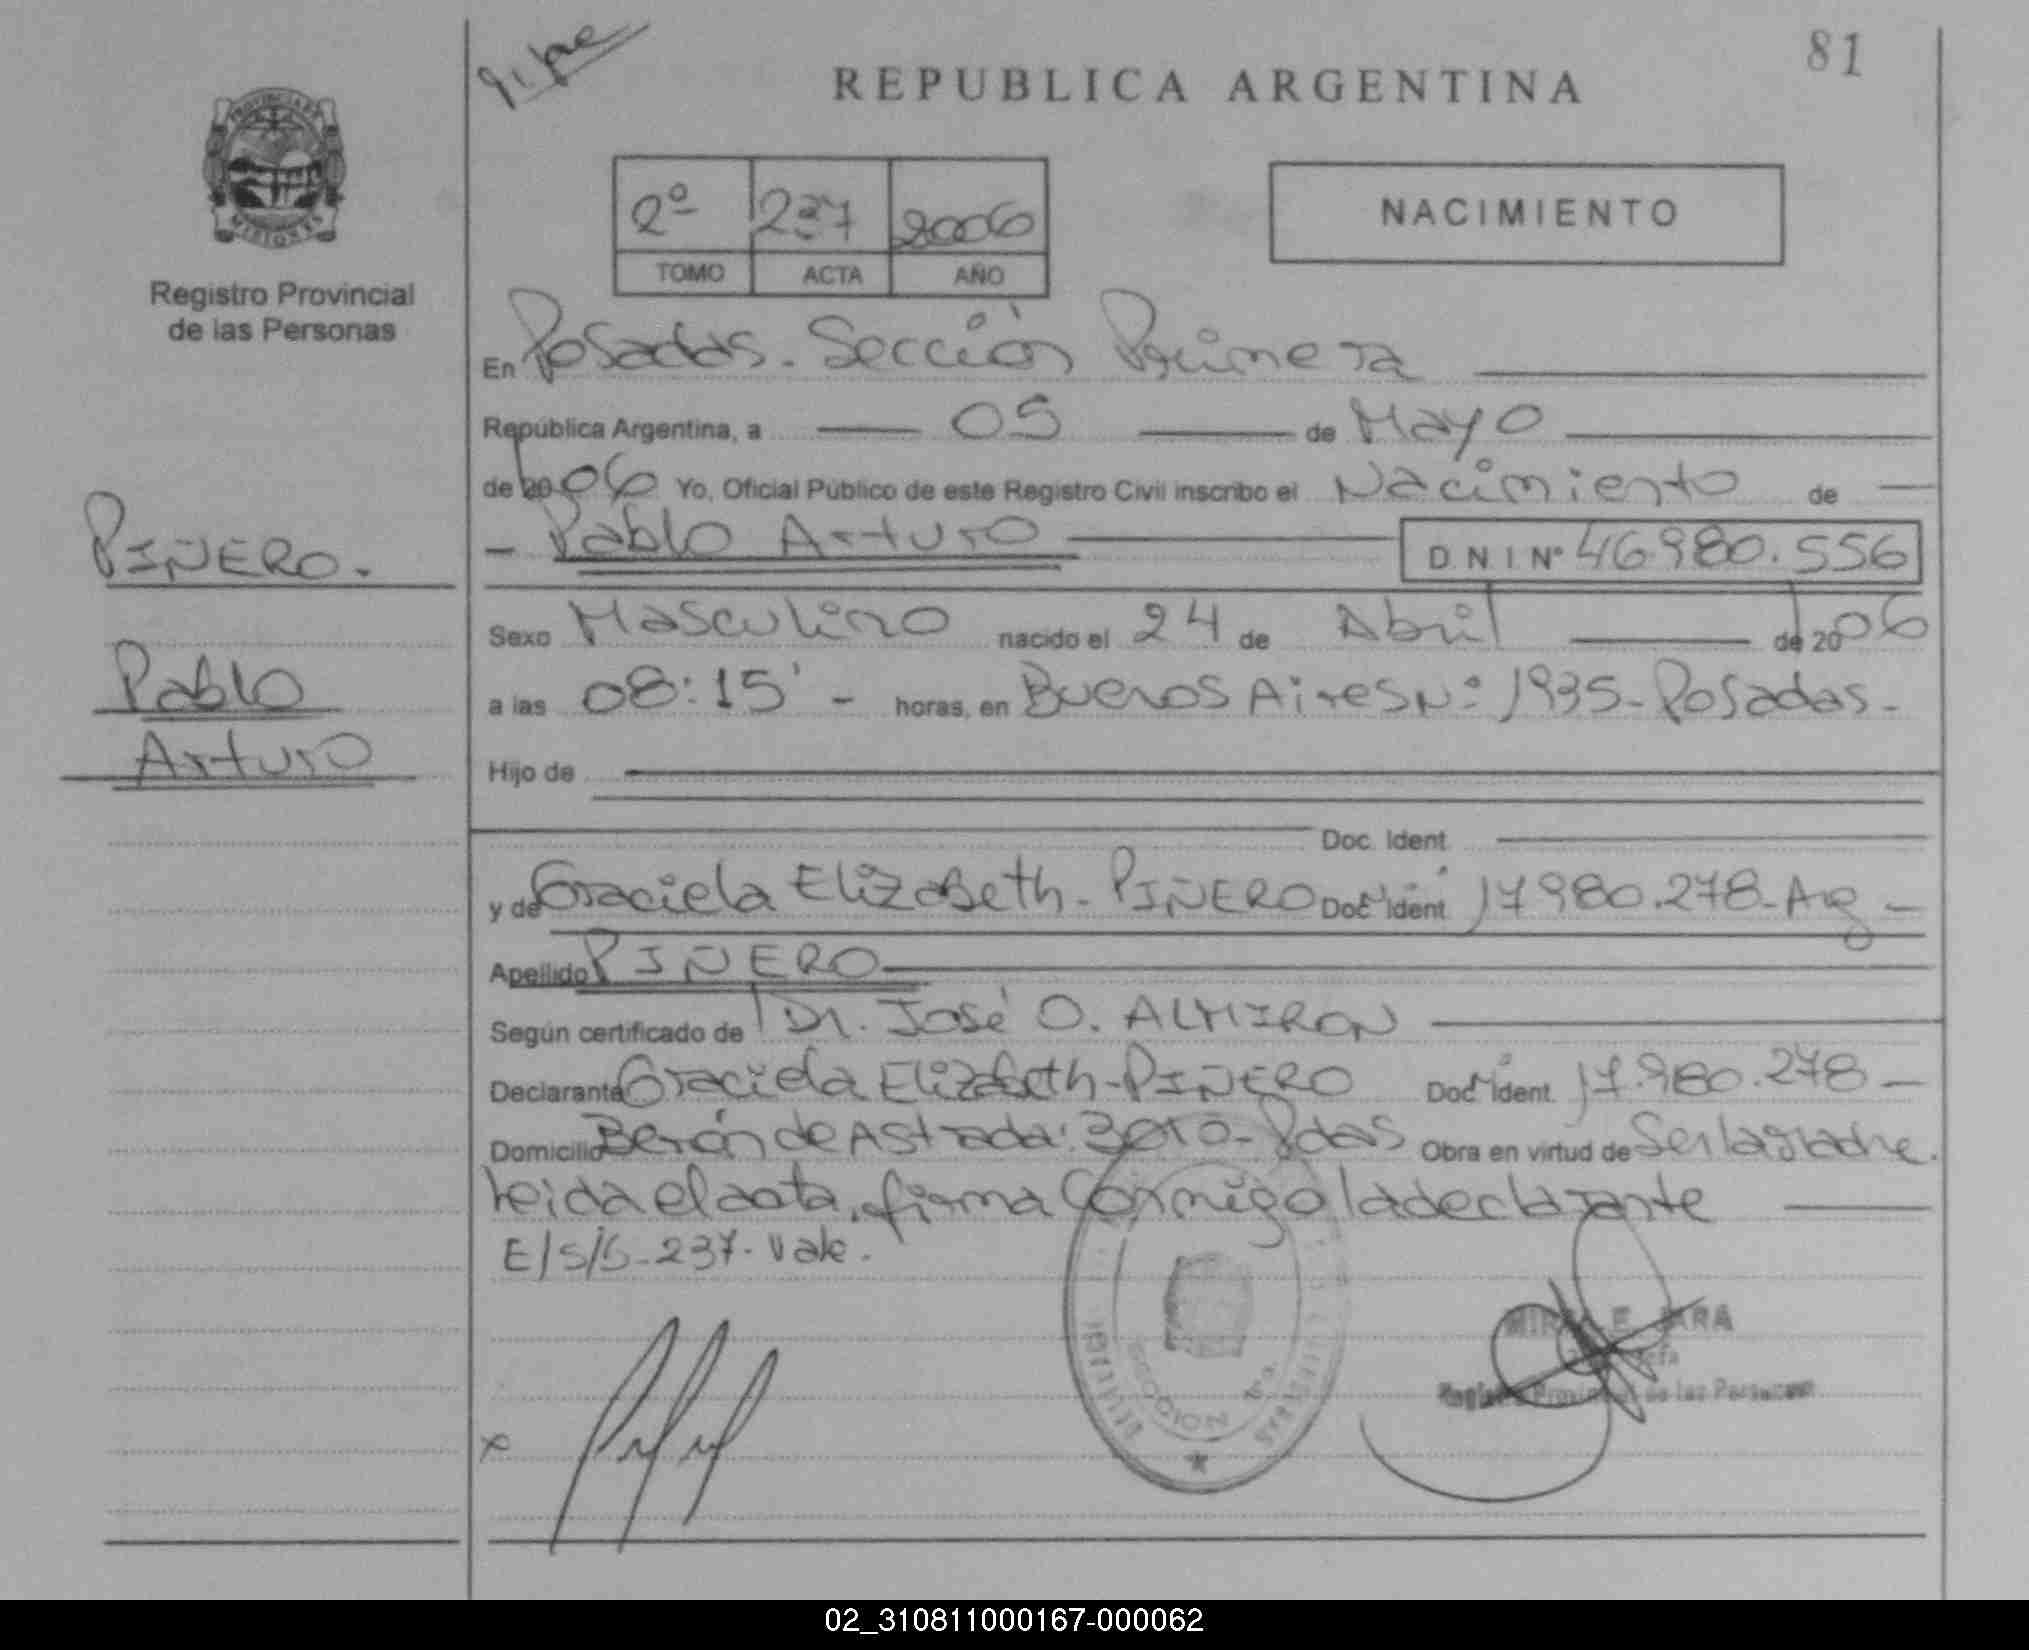 81
REPUBLICA ARGENTINA
PROVINCIA DE
MISIONES
Registro Provincial
de las Personas
2º 237 2006
TOMO ACTA AÑO
NACIMIENTO
En Posadas. Sección Primera
República Argentina, a 05 de Mayo
de 2006 Yo, Oficial Público de este Registro Civil inscribo el Nacimiento de
Pablo Arturo D N I Nº 46.980.556
PIÑERO.
Pablo
Arturo
Sexo Masculino nacido el 24 de Abril de 2006
a las 08:15' - horas, en Buenos Aires Nº 1935 - Posadas -
Hijo de
Doc. Ident.
y de Graciela Elizabeth - PIÑERO Doc Ident 17980.278 - Arg -
Apellido PIÑERO
Según certificado de Dr. José O. ALMIRON
Declarante Graciela Elizabeth - PIÑERO Doc Ident. 17.980.278 -
Domicilio Berón de Astrada: 3010 - Pdas Obra en virtud de Ser la madre.
Leida el acta, firma Conmigo la declarante
E/S/S - 237 - Vale.
SECCION 1ra.
Registro Provincial de las Personas
x
02_310811000167-000062